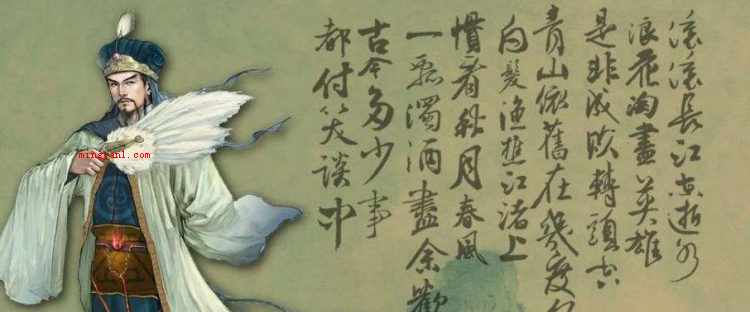 滚滚長江东逝水
浪花淘盡英雄
是非成败轉頭空
青山依舊在幾度夕
白髮渔樵江渚上
慣看秋月春風
一壺濁酒盡余歡
古今多少事
都付笑談中
mingyanl.com